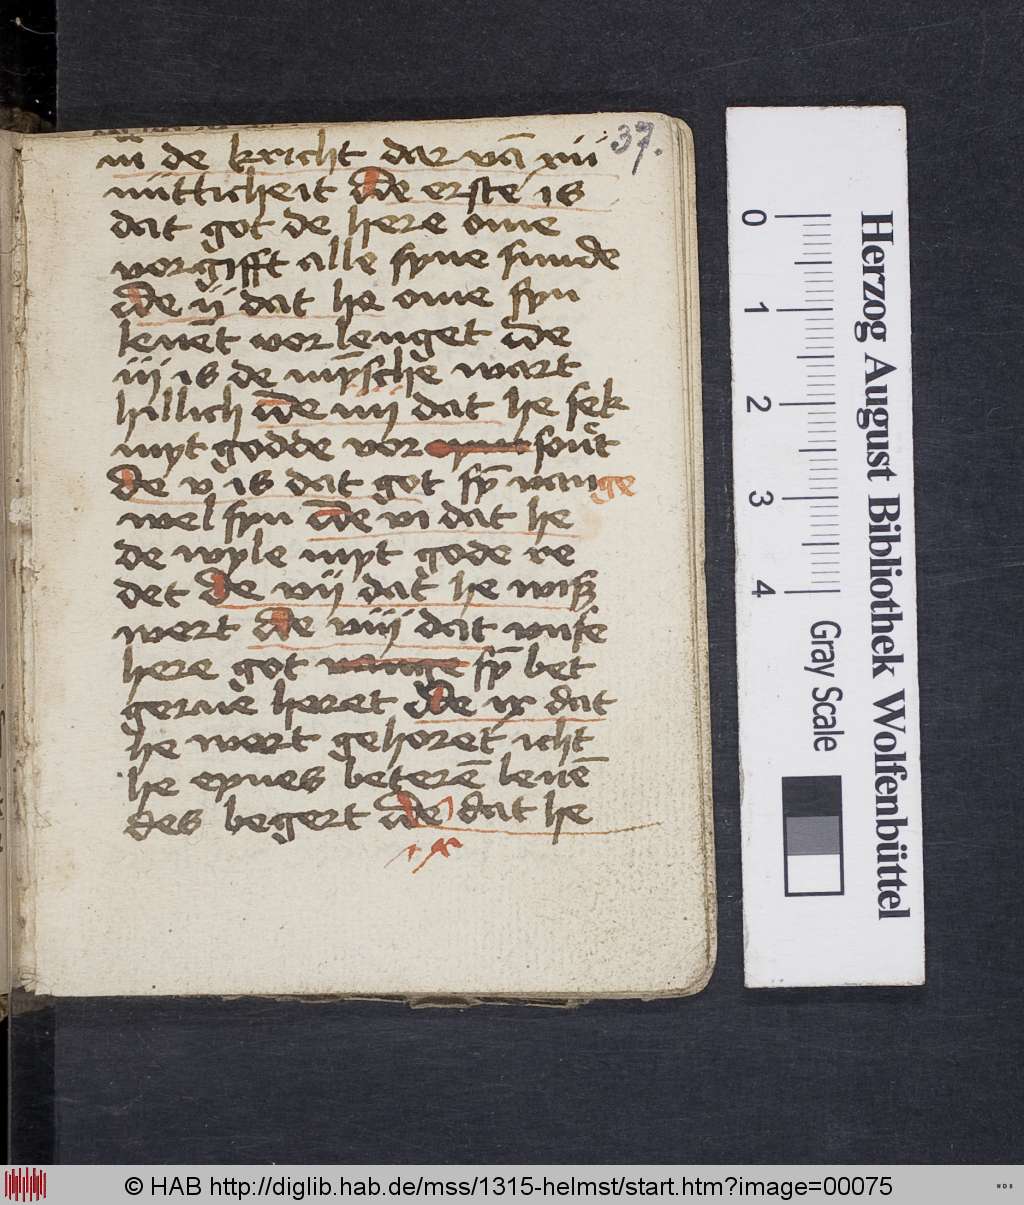 37.
m̄ de kricht dar vā xii
nütticheit v̄de erste is
dat got de here ome
vorgifft alle syne sunde
v̄de ij dat he ome syn
leuēt vorlenget v̄de
iij is de mȳsche wart
hillich v̄de iiij dat he sek
myt godde vor sonͤt
de v is dat got sȳ vange
wel syn v̄de vi dat he
de wyle myt gode re
det de vij dat he wiß
wert v̄de viij dat vnse
here got sȳ bet
gerne horet v̄de ix dat
he wert gehoret icht
he eynes beterē leuē
des begert v̄de dat he
x
0 1 2 3 4
Gray Scale
Herzog August Bibliothek Wolfenbüttel
© HAB http://diglib.hab.de/mss/1315-helmst/start.htm?image=00075